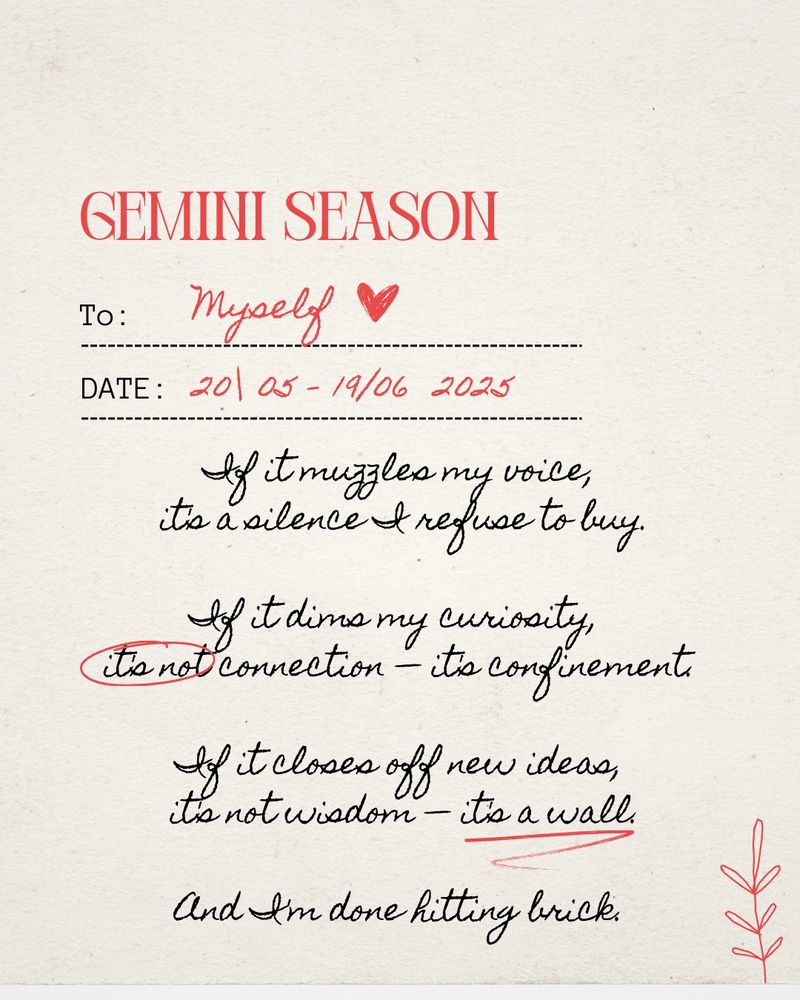 GEMINI SEASON
To: Myself
DATE: 20\ 05 - 19/06 2025
If it muzzles my voice,
it's a silence I refuse to buy.
If it dims my curiosity,
it's not connection — it's confinement.
If it closes off new ideas,
it's not wisdom — it's a wall.
And I'm done hitting brick.